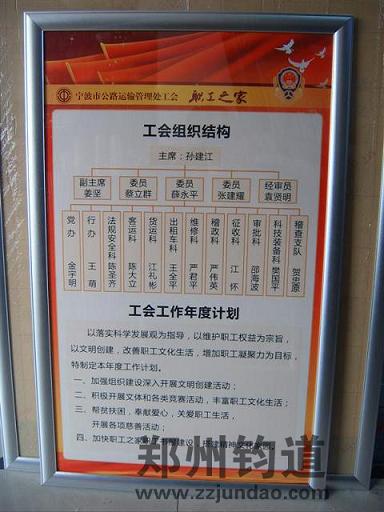 宁波市公路运输管理处工会 职工之家
工会组织结构
主席：孙建江
副主席 委员 委员 委员 经审员
姜坚 蔡立群 薛永平 张建耀 袁贤明
党办 金宇明
行办 王萌
法规安全科 陈圣齐
客运科 陈大立
货运科 江礼彬
出租车科 王全平
维修科 严君平
稽政科 严伟英
征收科 江怀
审批科 邵海波
科技装备科 樊国平
稽查支队 贺忠源
工会工作年度计划
以落实科学发展观为指导，以维护职工权益为宗旨，
以文明创建，改善职工文化生活，增加职工凝聚力为目标，
特制定本年度工作计划。
一、加强组织建设深入开展文明创建活动；
二、积极开展文体和各类竞赛活动，丰富职工文化生活；
三、帮贫扶困，奉献爱心，关爱职工生活，
开展各项慈善活动；
四、加快职工之家
建设
精神文化
郑州钧道
www.zzjundao.com